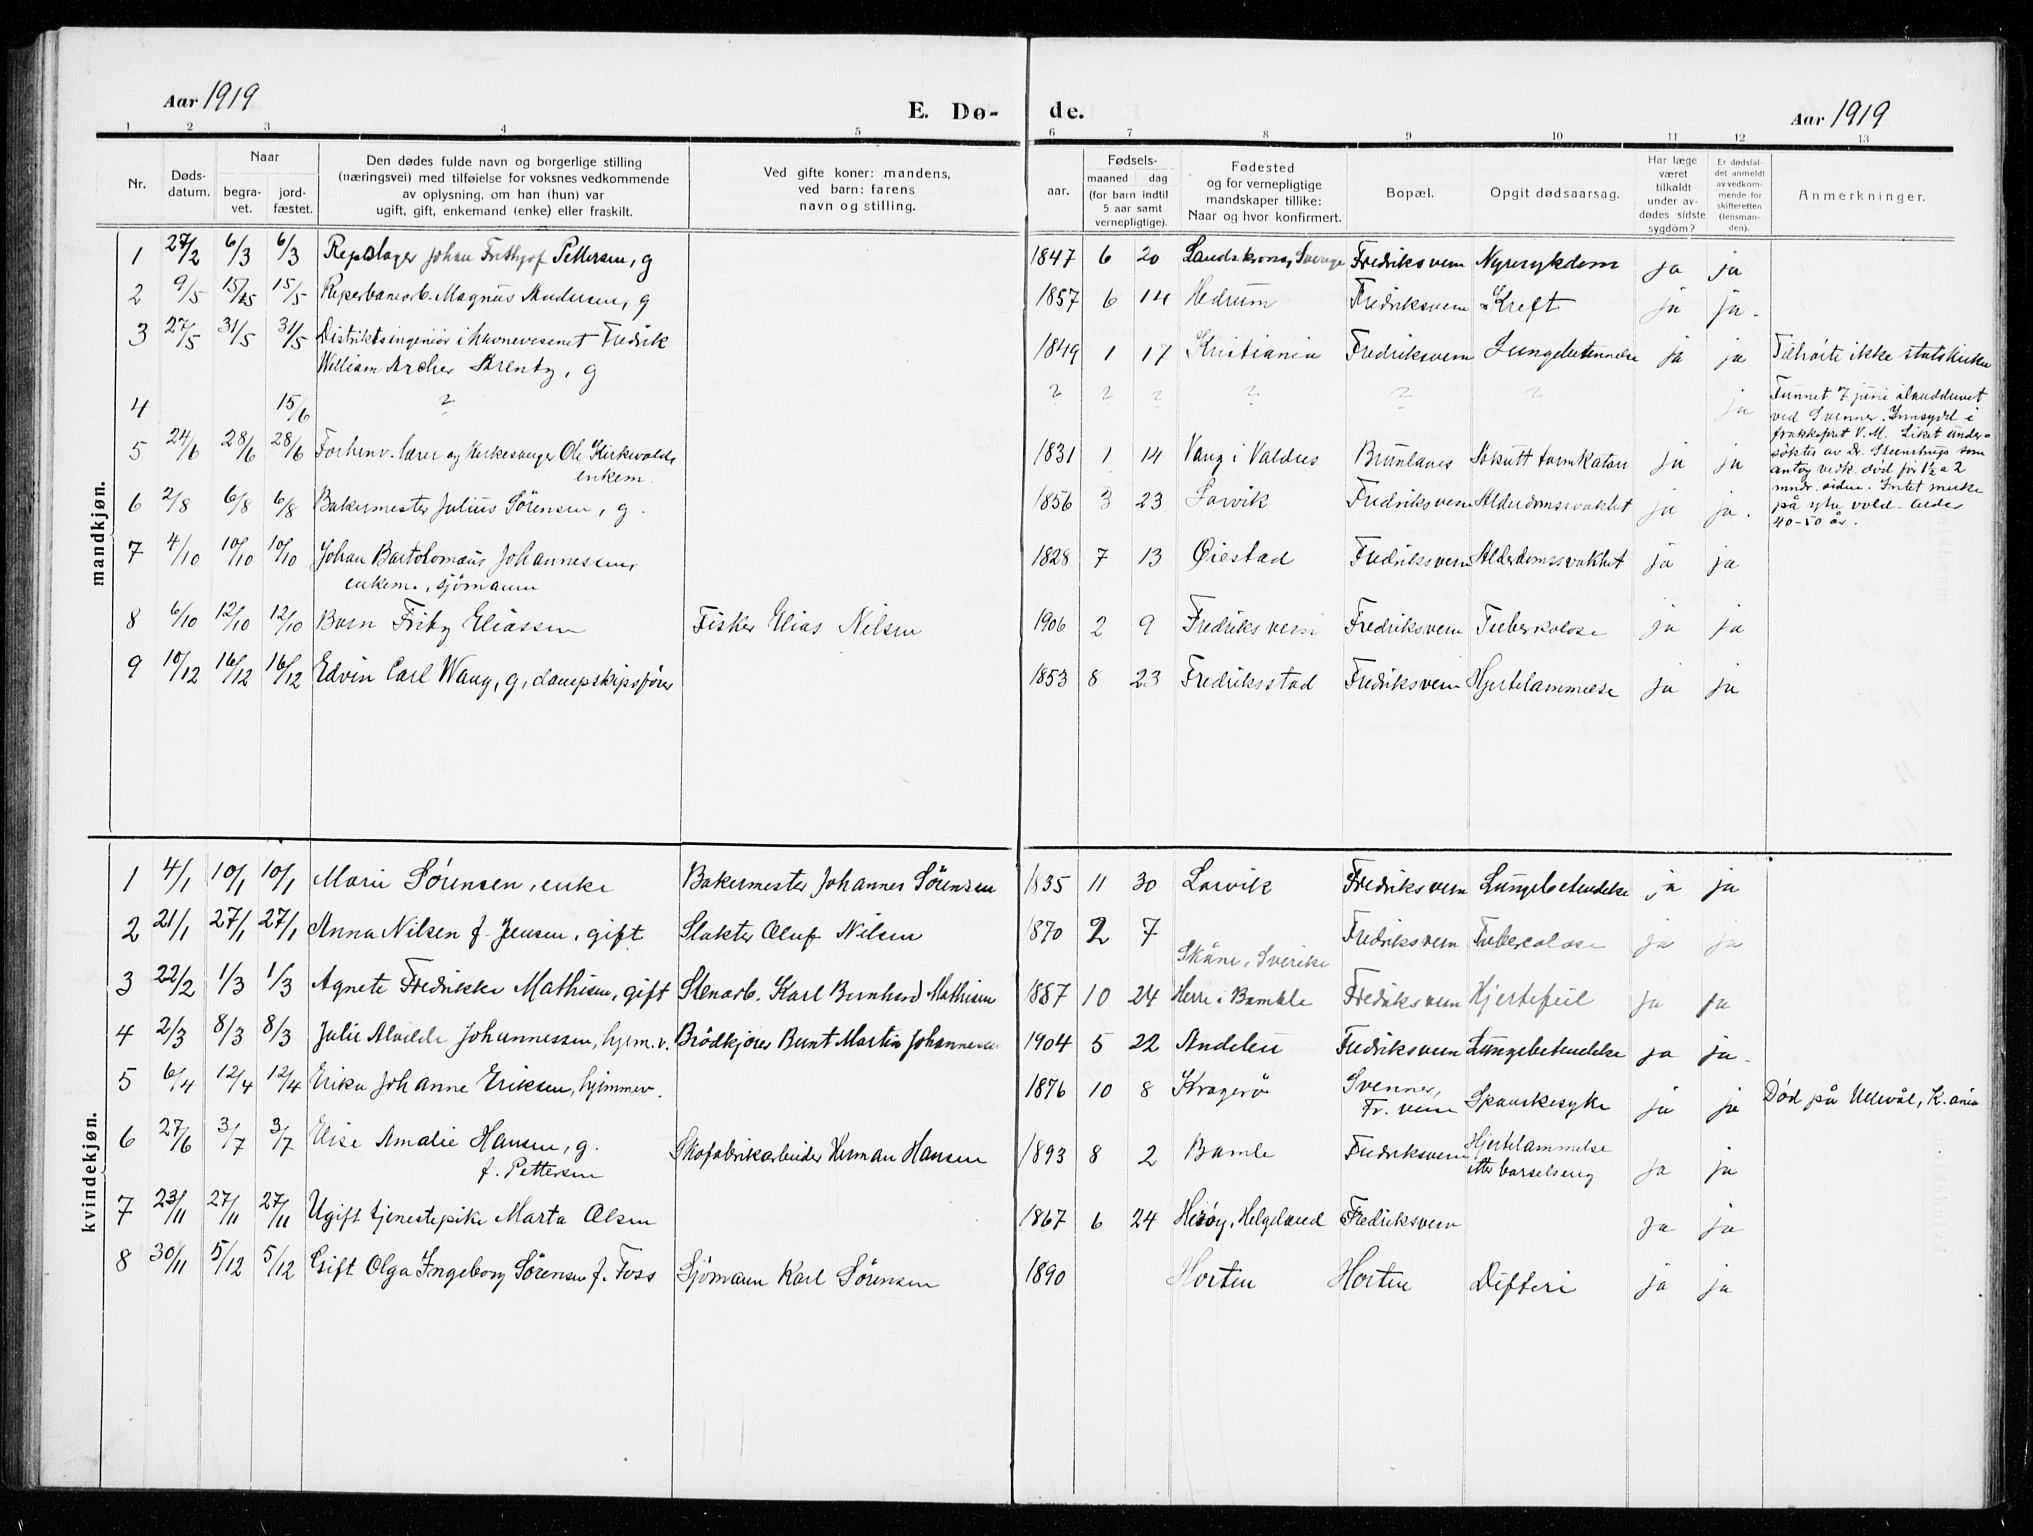 Aar 1919
E. Dø-
de.
Aar 1919
1 2 3 4 5 6 7 8 9 10 11 12 13
Nr.
Døds-
datum.
Naar
begra-
vet.
jord-
fæstet.
Den dødes fulde navn og borgerlige stilling
(næringsvei) med tilføielse for voksnes vedkommende
av oplysning, om han (hun) var
ugift, gift, enkemand (enke) eller fraskilt.
Ved gifte koner: mandens,
ved barn: farens
navn og stilling.
aar.
Fødsels-
maaned dag
(for barn indtil
5 aar samt
vernepligtige).
Fødested
og for vernepligtige
mandskaper tillike:
Naar og hvor konfirmert.
Bopæl.
Opgit dødsaarsag.
Har læge
været
tilkaldt
under av-
dødes sidste
sygdom?
Er dødsfal-
det anmeldt
av vedkom-
mende for
skifteretten
(lensman-
den).
Anmerkninger.
mandkjøn.
1 27/2 6/3 6/3 Repslager Johan Frithjof Pettersen, g 1847 6 20 Landskrona, Sverige Fredriksvern Nyresykdom ja ja
2 9/5 15/5 15/5 Reperbanearb. Magnus Andersen, g 1857 6 14 Hedrum Fredriksvern Kreft ja ja.
3 27/5 31/5 31/5 Distriktsingeniør i havnevesenet Fredrik
William Archer Arentz, g 1849 1 17 Kristiania Fredriksvern Lungebetennelse ja ja Tilhørte ikke statskirken
4 15/6 ? ? ? ? ? ? ? ja Funnet 7 juni ilanddrevet
ved Svenner. Innsydd i
frakkefôret V.M. Liket under-
søktes av Dr. Steenstrup som
antog vedk. død for 1½ a 2
mndr. siden. Intet merke
på ytre vold. Alder
40-50 år.
5 24/6 28/6 28/6 Forhenv. lærer og kirkesanger Ole Kirkevold,
enkem. 1831 1 14 Vang i Valdres Brunlanes Akutt tarmkatarr ja ja
6 2/8 6/8 6/8 Bakermester Julius Sørensen, g. 1856 3 23 Larvik Fredriksvern Alderdomssvakhet ja ja.
7 4/10 10/10 10/10 Johan Bartolomæus Johannessen,
enkem., sjømann 1828 7 13 Øiestad Fredriksvern Alderdomssvakhet ja ja
8 6/10 12/10 12/10 Barn Fritz Eliassen Fisker Elias Nilsen 1906 2 9 Fredriksvern Fredriksvern Tuberkulose ja ja
9 10/12 16/12 16/12 Edvin Carl Wang, g, dampskipsfører 1853 8 23 Fredriksstad Fredriksvern Hjertelammelse ja ja
kvindekjøn.
1 4/1 10/1 10/1 Marie Sørensen, enke Bakermester Johannes Sørensen 1835 11 30 Larvik Fredriksvern Lungebetendelse ja ja
2 21/1 27/1 27/1 Anna Nilsen f. Jensen, gift Slakter Oluf Nilsen 1870 2 7 Skåne, Sverike Fredriksvern Tuberculose ja ja
3 22/2 1/3 1/3 Agnete Fredrikke Mathisen, gift Stenarb. Karl Bernhard Mathisen 1887 10 24 Herre i Bamble Fredriksvern Hjertefeil ja ja
4 2/3 8/3 8/3 Julie Alvilde Johannessen, hjem.v. Brødkjører Bernt Martin Johannessen 1904 5 22 Andelen Fredriksvern Lungebetendelse ja ja.
5 6/4 12/4 12/4 Erika Johanne Eriksen, hjemmev. 1876 10 8 Kragerø Svenner,
Fr. vern Spanskesyke ja ja Død på Ullevål, K.ania
6 27/6 3/7 3/7 Elise Amalie Hansen, g.
f. Pettersen Skofabrikarbeider Herman Hansen 1893 8 2 Bamle Fredriksvern Hjertelammelse
etter barselseng ja ja
7 23/11 27/11 27/11 Ugift tjenestepike Marta Olsen 1867 6 24 Herøy, Helgeland Fredriksvern ja ja
8 30/11 5/12 5/12 Gift Olga Ingeborg Sørensen f. Foss Sjømann Karl Sørensen 1890 Horten Horten Difteri ja ja